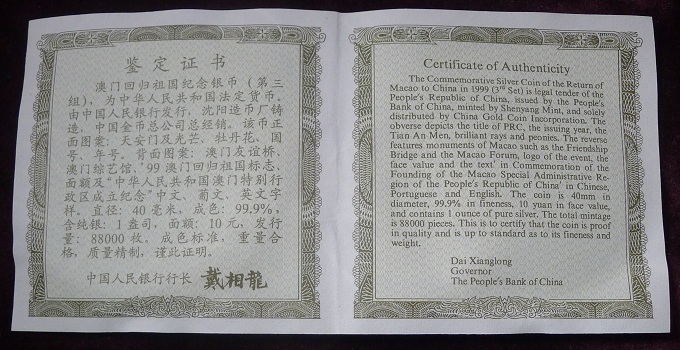 鉴定证书
澳门回归祖国纪念银币（第三
组），为中华人民共和国法定货币。
由中国人民银行发行，沈阳造币厂铸
造，中国金币总公司总经销。该币正
面图案：天安门及光芒、牡丹花、国
号、年号。背面图案：澳门友谊桥、
澳门综艺馆、'99澳门回归祖国标志、
面额及“中华人民共和国澳门特别行
政区成立纪念”中文、葡文、英文字
样。直径：40毫米，成色：99.9%，
含纯银：1盎司，面额：10元，发行
量：88000枚。成色标准，重量合
格，质量精制，谨此证明。
中国人民银行行长 戴相龍
Certificate of Authenticity
The Commemorative Silver Coin of the Return of
Macao to China in 1999 (3rd Set) is legal tender of the
People's Republic of China, issued by the People's
Bank of China, minted by Shenyang Mint, and solely
distributed by China Gold Coin Incorporation. The
obverse depicts the title of PRC, the issuing year, the
Tian An Men, brilliant rays and peonies. The reverse
features monuments of Macao such as the Friendship
Bridge and the Macao Forum, logo of the event, the
face value and the text' in Commemoration of the
Founding of the Macao Special Administrative Re-
gion of the People's Republic of China' in Chinese,
Portuguese and English. The coin is 40mm in
diameter, 99.9% in fineness, 10 yuan in face value,
and contains 1 ounce of pure silver. The total mintage
is 88000 pieces. This is to certify that the coin is proof
in quality and is up to standard as to its fineness and
weight.
Dai Xianglong
Governor
The People's Bank of China